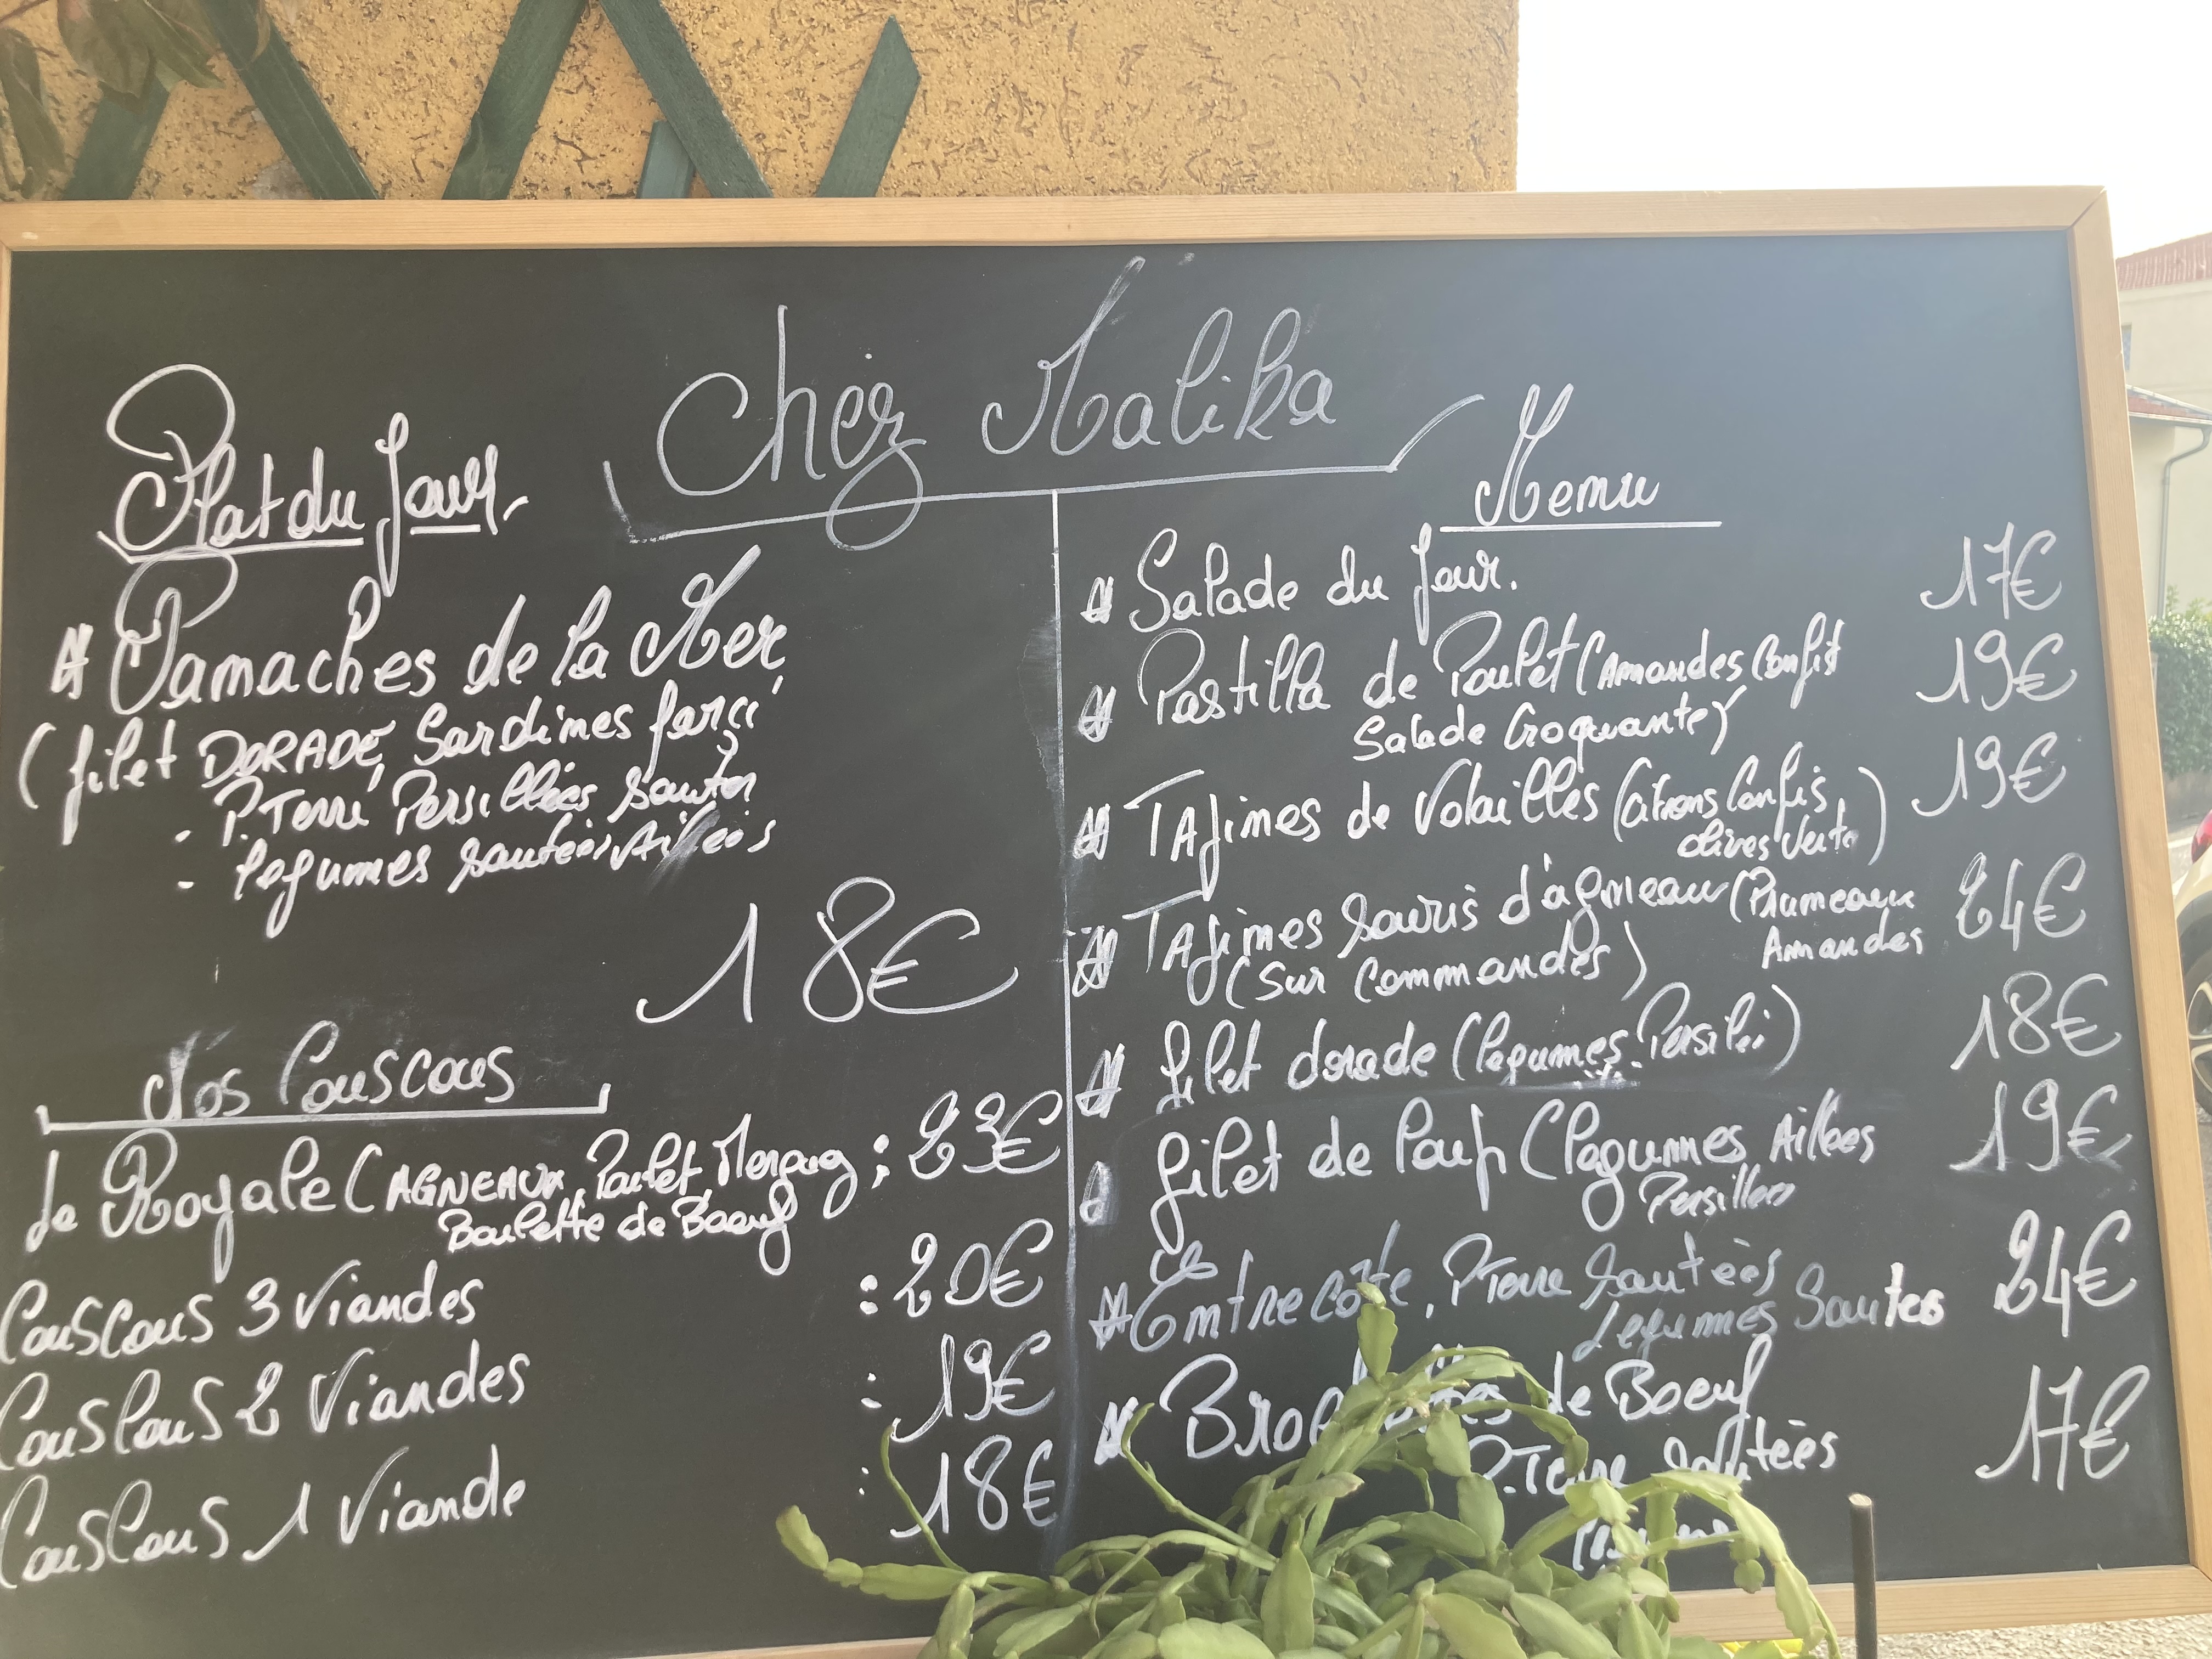 Chez Malika
Plat du Jour
Panaches de la Mer
(filet DORADE, Sardines farci
- P. Terre Persillées Sautés
- legumes sautées, Aillées
18€
Nos Couscous
Le Royale (AGNEAUX, Poulet Merguez : 23€
Boulette de Boeuf
Couscous 3 Viandes : 20€
Couscous 2 Viandes : 19€
Couscous 1 Viande : 18€
Menu
Salade du Jour. 17€
Pastilla de Poulet (Amandes Confit 19€
Salade Croquante)
TAjines de Volailles (Citrons Confis, 19€
olives Verte)
TAjines Souris d'agneau (Pruneaux 24€
Amandes
(Sur Commandes)
filet dorade (legumes Persilé) 18€
filet de loup (legumes Aillées 19€
Persillées
Entrecôte, P Terre Sautéés 24€
Legumes Sautes
de Boeuf 17€
P. Terre Sautéès